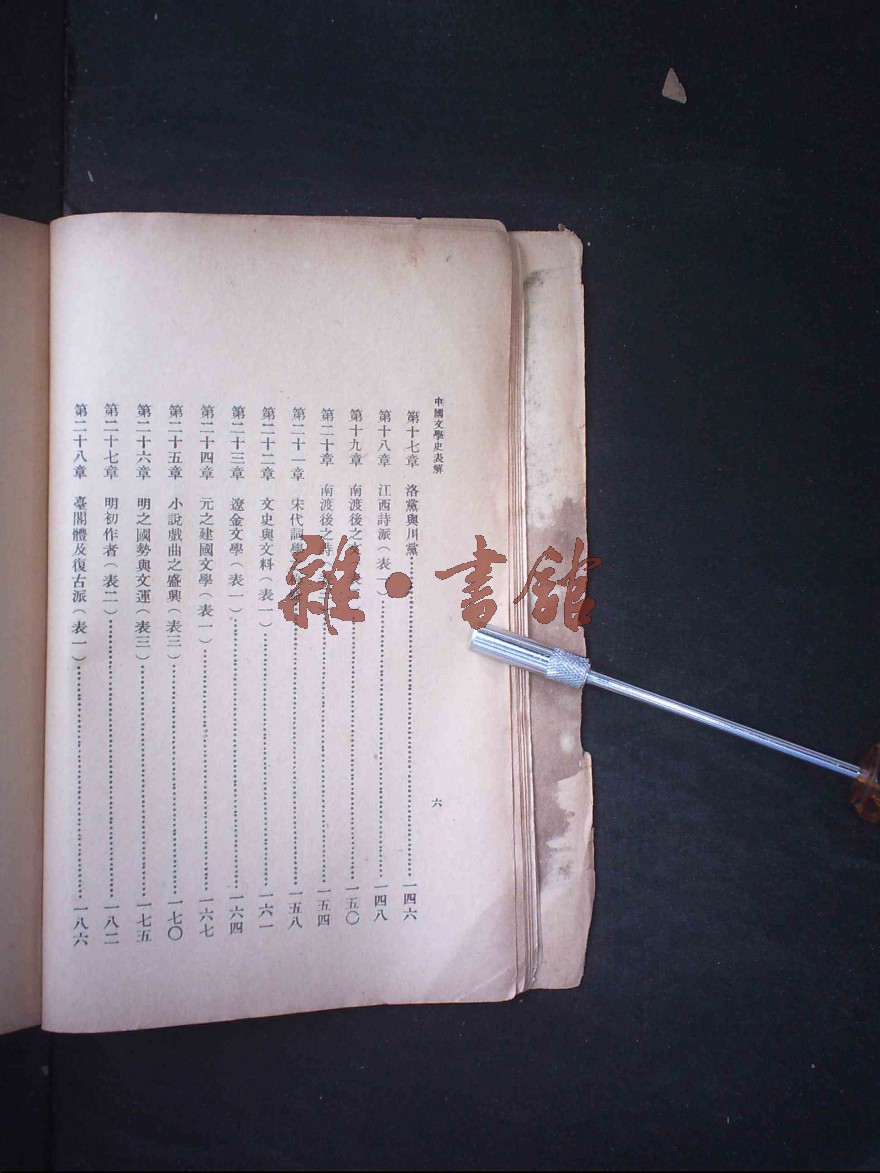 中國文學史表解
六
第十七章 洛黨與川黨⋯⋯一四六
第十八章 江西詩派(表一)⋯⋯一四八
第十九章 南渡後之文⋯⋯一五〇
第二十章 南渡後之詩⋯⋯一五四
第二十一章 宋代詞學⋯⋯一五八
第二十二章 文史與文料(表一)⋯⋯一六一
第二十三章 遼金文學(表一)⋯⋯一六四
第二十四章 元之建國文學(表一)⋯⋯一六七
第二十五章 小說戲曲之盛興(表三)⋯⋯一七〇
第二十六章 明之國勢與文運(表三)⋯⋯一七五
第二十七章 明初作者(表二)⋯⋯一八二
第二十八章 臺閣體及復古派(表一)⋯⋯一八六
雜·書館